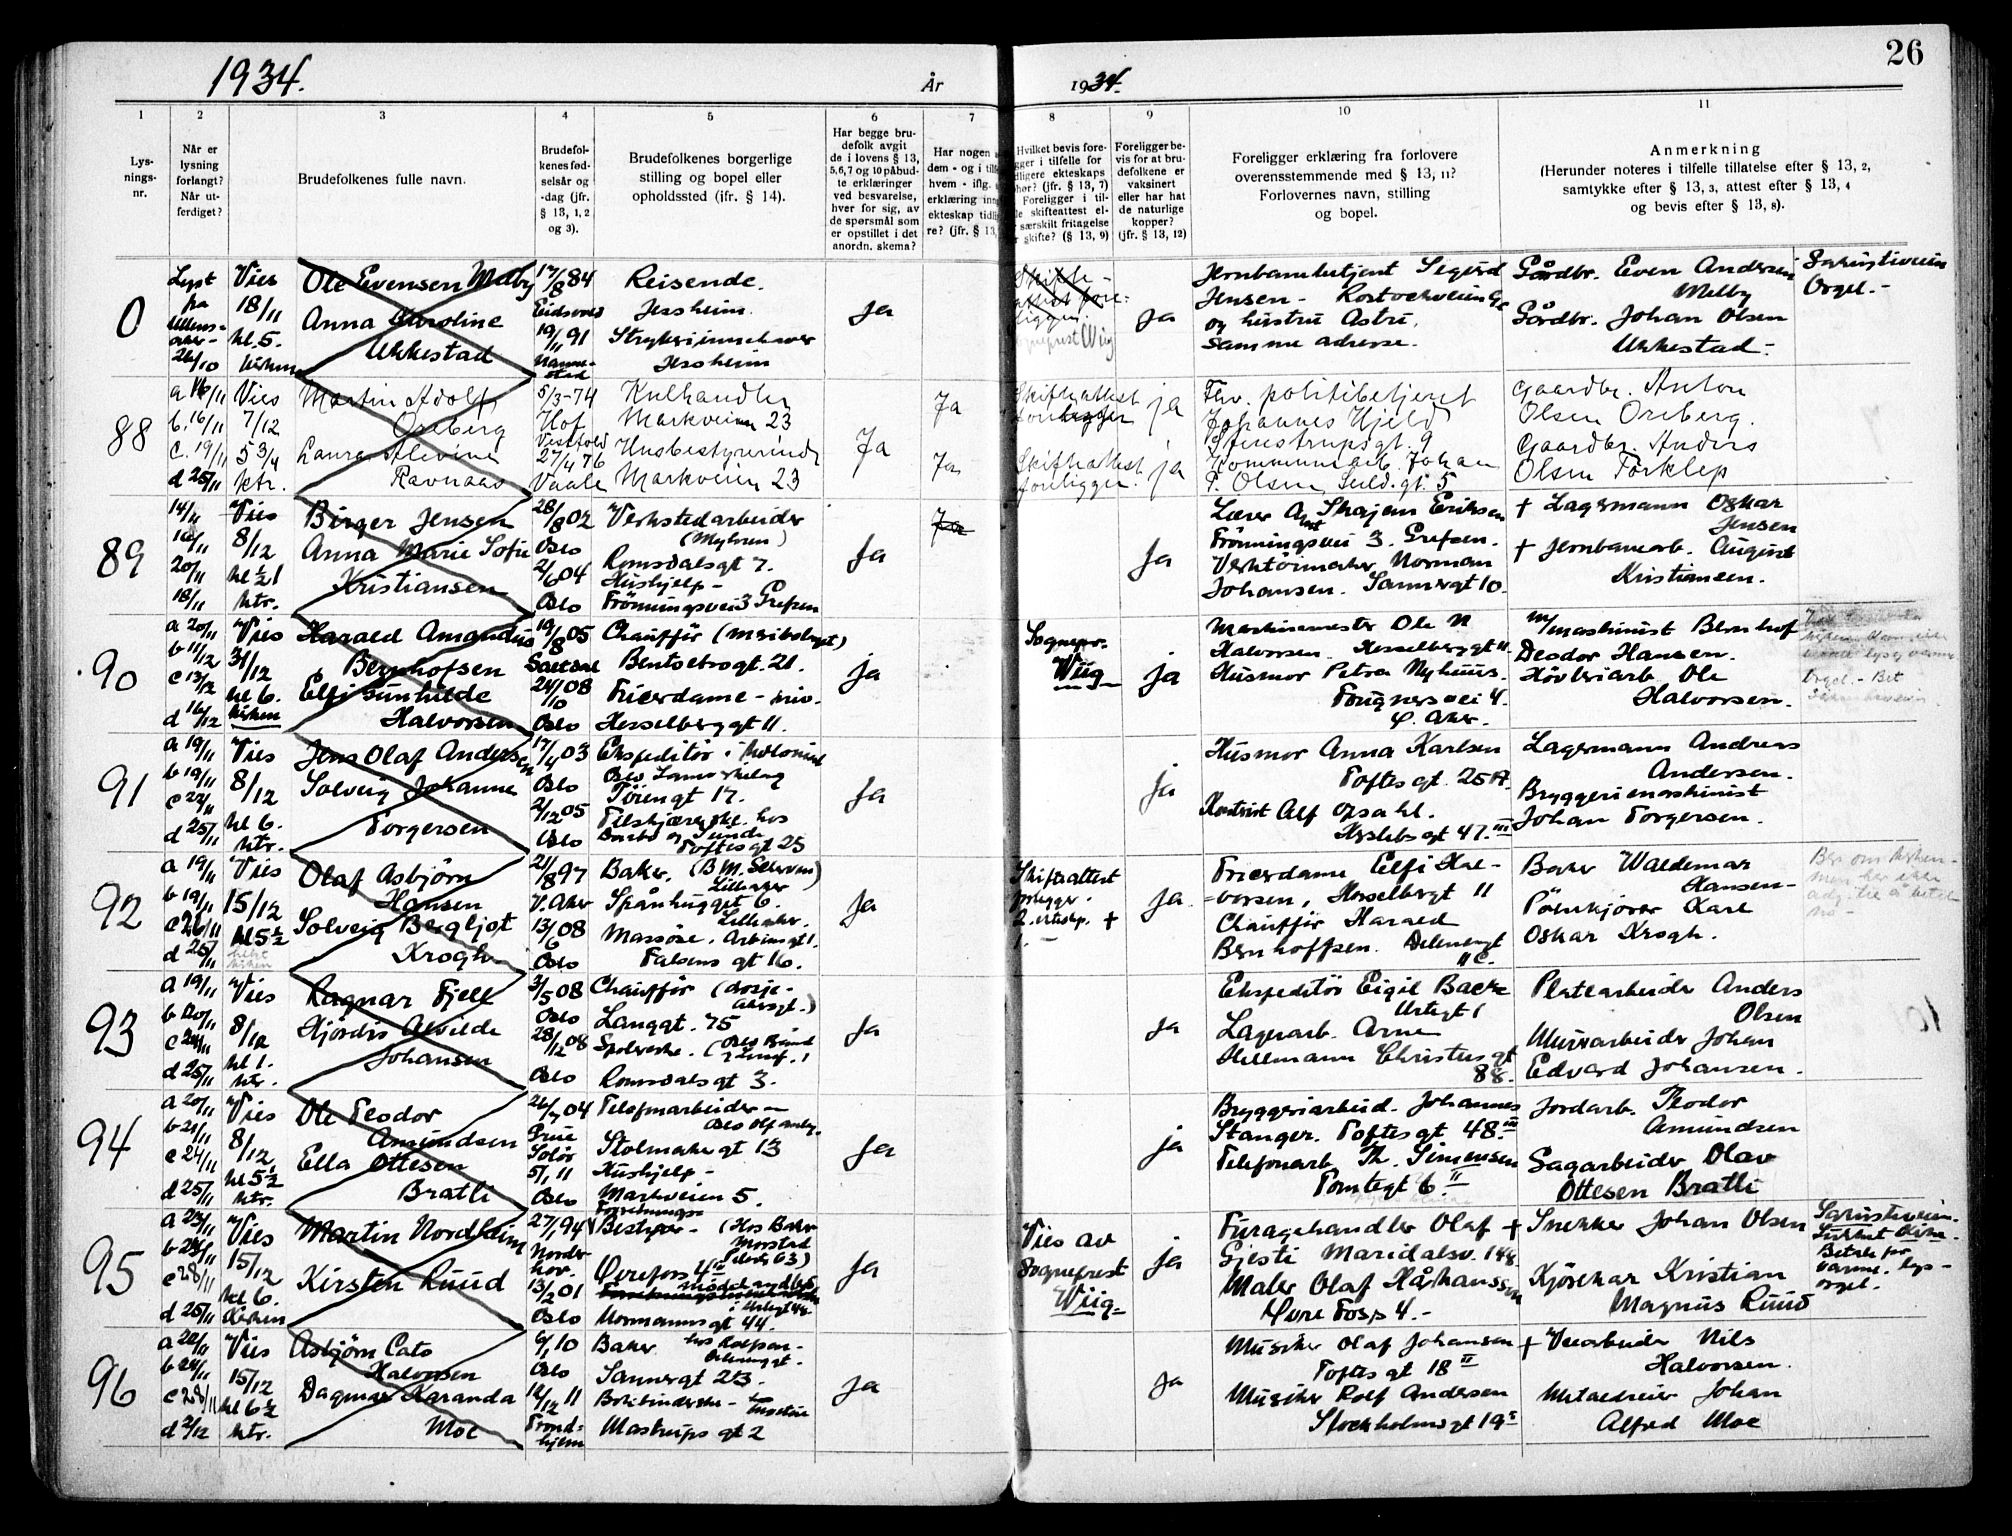 1934.
År
1934.
26
1
2
3
4
5
6
7
8
9
10
11
Lys-
nings-
nr.
Når er
lysning
forlangt?
Når ut-
ferdiget?
Brudefolkenes fulle navn.
Brudefol-
kenes fød-
selsår og
-dag (jfr.
§ 13, 1, 2
og 3).
Brudefolkenes borgerlige
stilling og bopel eller
opholdssted (jfr. § 14).
Har begge bru-
defolk avgit
de i lovens § 13,
5,6,7 og 10 påbud-
te erklæringer
ved besvarelse,
hver for sig, av
de spørsmål som
er opstillet i det
anordn. skema?
Har nogen
dem - og i til
hvem - iflg.
erklæring inn
ekteskap tidli
re? (jfr. § 13,
Hvilket bevis fore-
gger i tilfelle for
dligere ekteskaps
hør? (jfr. § 13, 7)
Foreligger i til-
le skifteattest el-
særskilt fritagelse
skifte? (§ 13, 9)
Foreligger be-
vis for at bru-
defolkene er
vaksinert
eller har hat
de naturlige
kopper?
(jfr. § 13, 12)
Foreligger erklæring fra forlovere
overensstemmende med § 13, 11?
Forlovernes navn, stilling
og bopel.
Anmerkning
(Herunder noteres i tilfelle tillatelse efter § 13, 2,
samtykke efter § 13, 3, attest efter § 13, 4
og bevis efter § 13, 8).
0
Lyst
på
26/10
Vies
18/11
kl. 5.
Kirken
Ole Evensen Melby
Anna Karoline
Ukkestad
17/8 84
Eidsvold
19/11 91
Reisende.
Jessheim.
Jessheim
Ja
Ja
Jernbanebetjent Sigurd
Jensen -
og hustru
samme adresse.
Gårdbr. Even Andersen
Melby
Gårdbr. Johan Olsen
Ukkestad -
Sakristiveien
Orgel. -
88
a 16/11
b. 16/11
c. 19/11
d 25/11
Vies
7/12
5 3/4
ktr.
Martin Adolf
Oreberg
Laura Alevine
Ravnaas
5/3-74
Hof
Vestfold
27/4 76
Vaale
Kulhandler
Markveien 23
Husbestyrerinde
Markveien 23
Ja
Ja
Ja
Skifteattest
foreligger
Skifteattest
foreligger
ja
ja
Fhv. politibetjent
Johannes Hjeld
Stenstrupsgt. 9
Kommunearb. Johan
P. Olsen Seild.gt. 5
Gaardbr. Anton
Olsen Oreberg.
Gaardbr. Anders
Olsen Torklep
89
14/11
20/11
18/11
Vies
8/12
kl ½ 1
ktr.
Birger Jensen
Anna Marie Sofie
Kristiansen
28/8 02
Oslo
2/6 04
Oslo
Verkstedarbeider
(Myhren)
Romsdalsgt 7.
Hushjelp -
Frönningsvei 3 Grefsen
Ja
Ja
Ja
Lærer Skajem Eriksen
Frönningsvei 3. Grefsen.
Verktöimaker Norman
Johansen. Sannergt 10.
+ Lagermann Oskar
Jensen
+ Jernbanearb. August
Kristiansen.
90
a 20/11
b 11/12
c 13/12
d 16/12
Vies
31/12
kl 6.
Kirken
Harald Amandus
Bernhofsen
Elfi Gunhilde
Halvorsen
19/8 05
24/10 08
Oslo
Chauffør
Bentsebrogt. 21.
Frisørdame - priv.
Hesselberggt 11.
ja
Sognepr.
Wiig
ja
Maskinmester Ole N
Halvorsen. Hesselberggt 11.
Husmor Petra Nyhuus.
Fougnersvei 4.
Ø. Aker.
m/maskinist Bernhof
Deodor Hansen.
Høvleriarb Ole
Halvorsen.
91
a 19/11
b 19/11
c 22/11
d 25/11
Vies
8/12
kl 6.
ktr.
Jens Olaf Andersen
Solveig Johanne
Torgersen
17/4 03
Oslo
2/12 05
Oslo
Ekspeditör i
Töiengt 17.
Toftesgt 25
Ja
ja
Husmor Anna Karlsen
Toftesgt. 25 A.
Kontorist Alf Opsahl.
Herslebsgt 47. III
Lagermann Andreas
Andersen.
Bryggerimaskinist
Johan Torgersen.
92
a 19/11
b 19/11
c 26/11
d 25/11
Vies
15/12
kl 5½
Olaf Asbjörn
Hansen
Solveig Bergljot
Krogh
21/8 97
V. Aker
13/6 08
Oslo
Baker.
Lilleaker
Lilleaker.
Massøse.
Falsens gt 16.
Ja
Skifteattest
Ja
Frisørdame Elfi Hal-
vorsen, Hesselbergt 11
Chauffør Harald
Bernhoffsen.
11 C.
Baker Waldemar
Hansen -
Karl
Oskar Krogh.
93
a 19/11
b 20/11
c 24/11
d 25/11
Vies
8/12
kl 1.
ktr.
Ragnar Fjell
Hjördis Alvilde
Johansen
3/5 08
Oslo
28/12 08
Oslo
Chauffør
Langgt. 75
Romsdalsgt 3.
Ja
Ja
Ekspeditör Eigil Backe
Urtegt 1
Lagerarb. Arne
Hellmann Christiesgt
88.
Platearbeider Anders
Olsen
Murarbeider Johan
Edvard Johansen.
94
a 20/11
b 21/11
c 24/11
d 25/11
Vies
8/12
kl 5½
ktr.
Ole Teodor
Amundsen
Ella Ottesen
Bratli
26/7 04
Grue
Solør
5/1 11
Oslo
Telefonarbeider -
Stolmakergt 13
Hushjelp -
Markveien 5.
Ja
ja
Bryggeriarbeid. Johannes
Stanger. Toftesgt 48. III
Telefonarb Th. Simensen
Tomtegt 6. II
Jordarb. Teodor
Amundsen
Sagarbeider Olav
Ottesen Bratli
95
a 23/11
b 24/11
c 28/11
d 25/11
Vies
15/12
kl 6.
Kirken
Martin Nordheim
Kirsten Ruud
27/1 94
Norder
hov.
13/2 01
Oslo
Forretnings-
Bestyrer - (Hos Baker
Morstad
Normannsgt 44.
Ja
Vies av
Sogneprest
Wiig -
ja
Furagehandler Olaf +
Gjesti Maridalsv. 144.
Maler Olaf Håkanssen
Øvre Foss 4. -
Snekker Johan Olsen
Kjørekar Kristian
Magnus Ruud
Sakristiveien.
Betalt for
varme. lys -
orgel.
96
a 22/11
b 24/11
c 28/11
d 2/12
Vies
15/12
kl 6½
ktr.
Asbjörn Cato
Halvorsen
Dagmar Karanda
Moe
6/1 10
Oslo
12/12 11
Trond-
hjem
Baker
Sannergt 23.
Bokbinderske -
Mastrups gt 2
Ja
Ja
Musiker Olaf Johansen
Toftes gt 18 II
Musiker Rolf Andersen
Stockholmsgt 19
+ Veiarbeider Nils
Halvorsen.
Metaldreier Johan
Alfred Moe